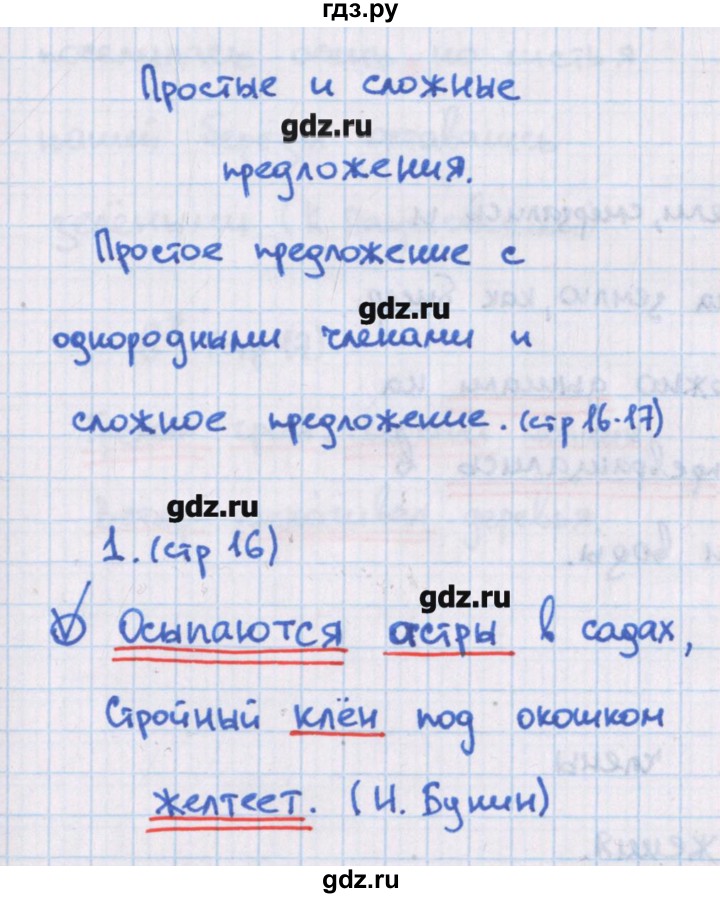 гдз.ру
Простые и сложные
gdz.ru
предложения.
Простое предложение с
gdz.ru
однородными членами и
сложное предложение. (стр 16-17)
gdz.ru
1. (стр 16)
gdz.ru
Осыпаются астры в садах,
Стройный клён под окошком
желтеет. (И. Бунин)
gdz.ru